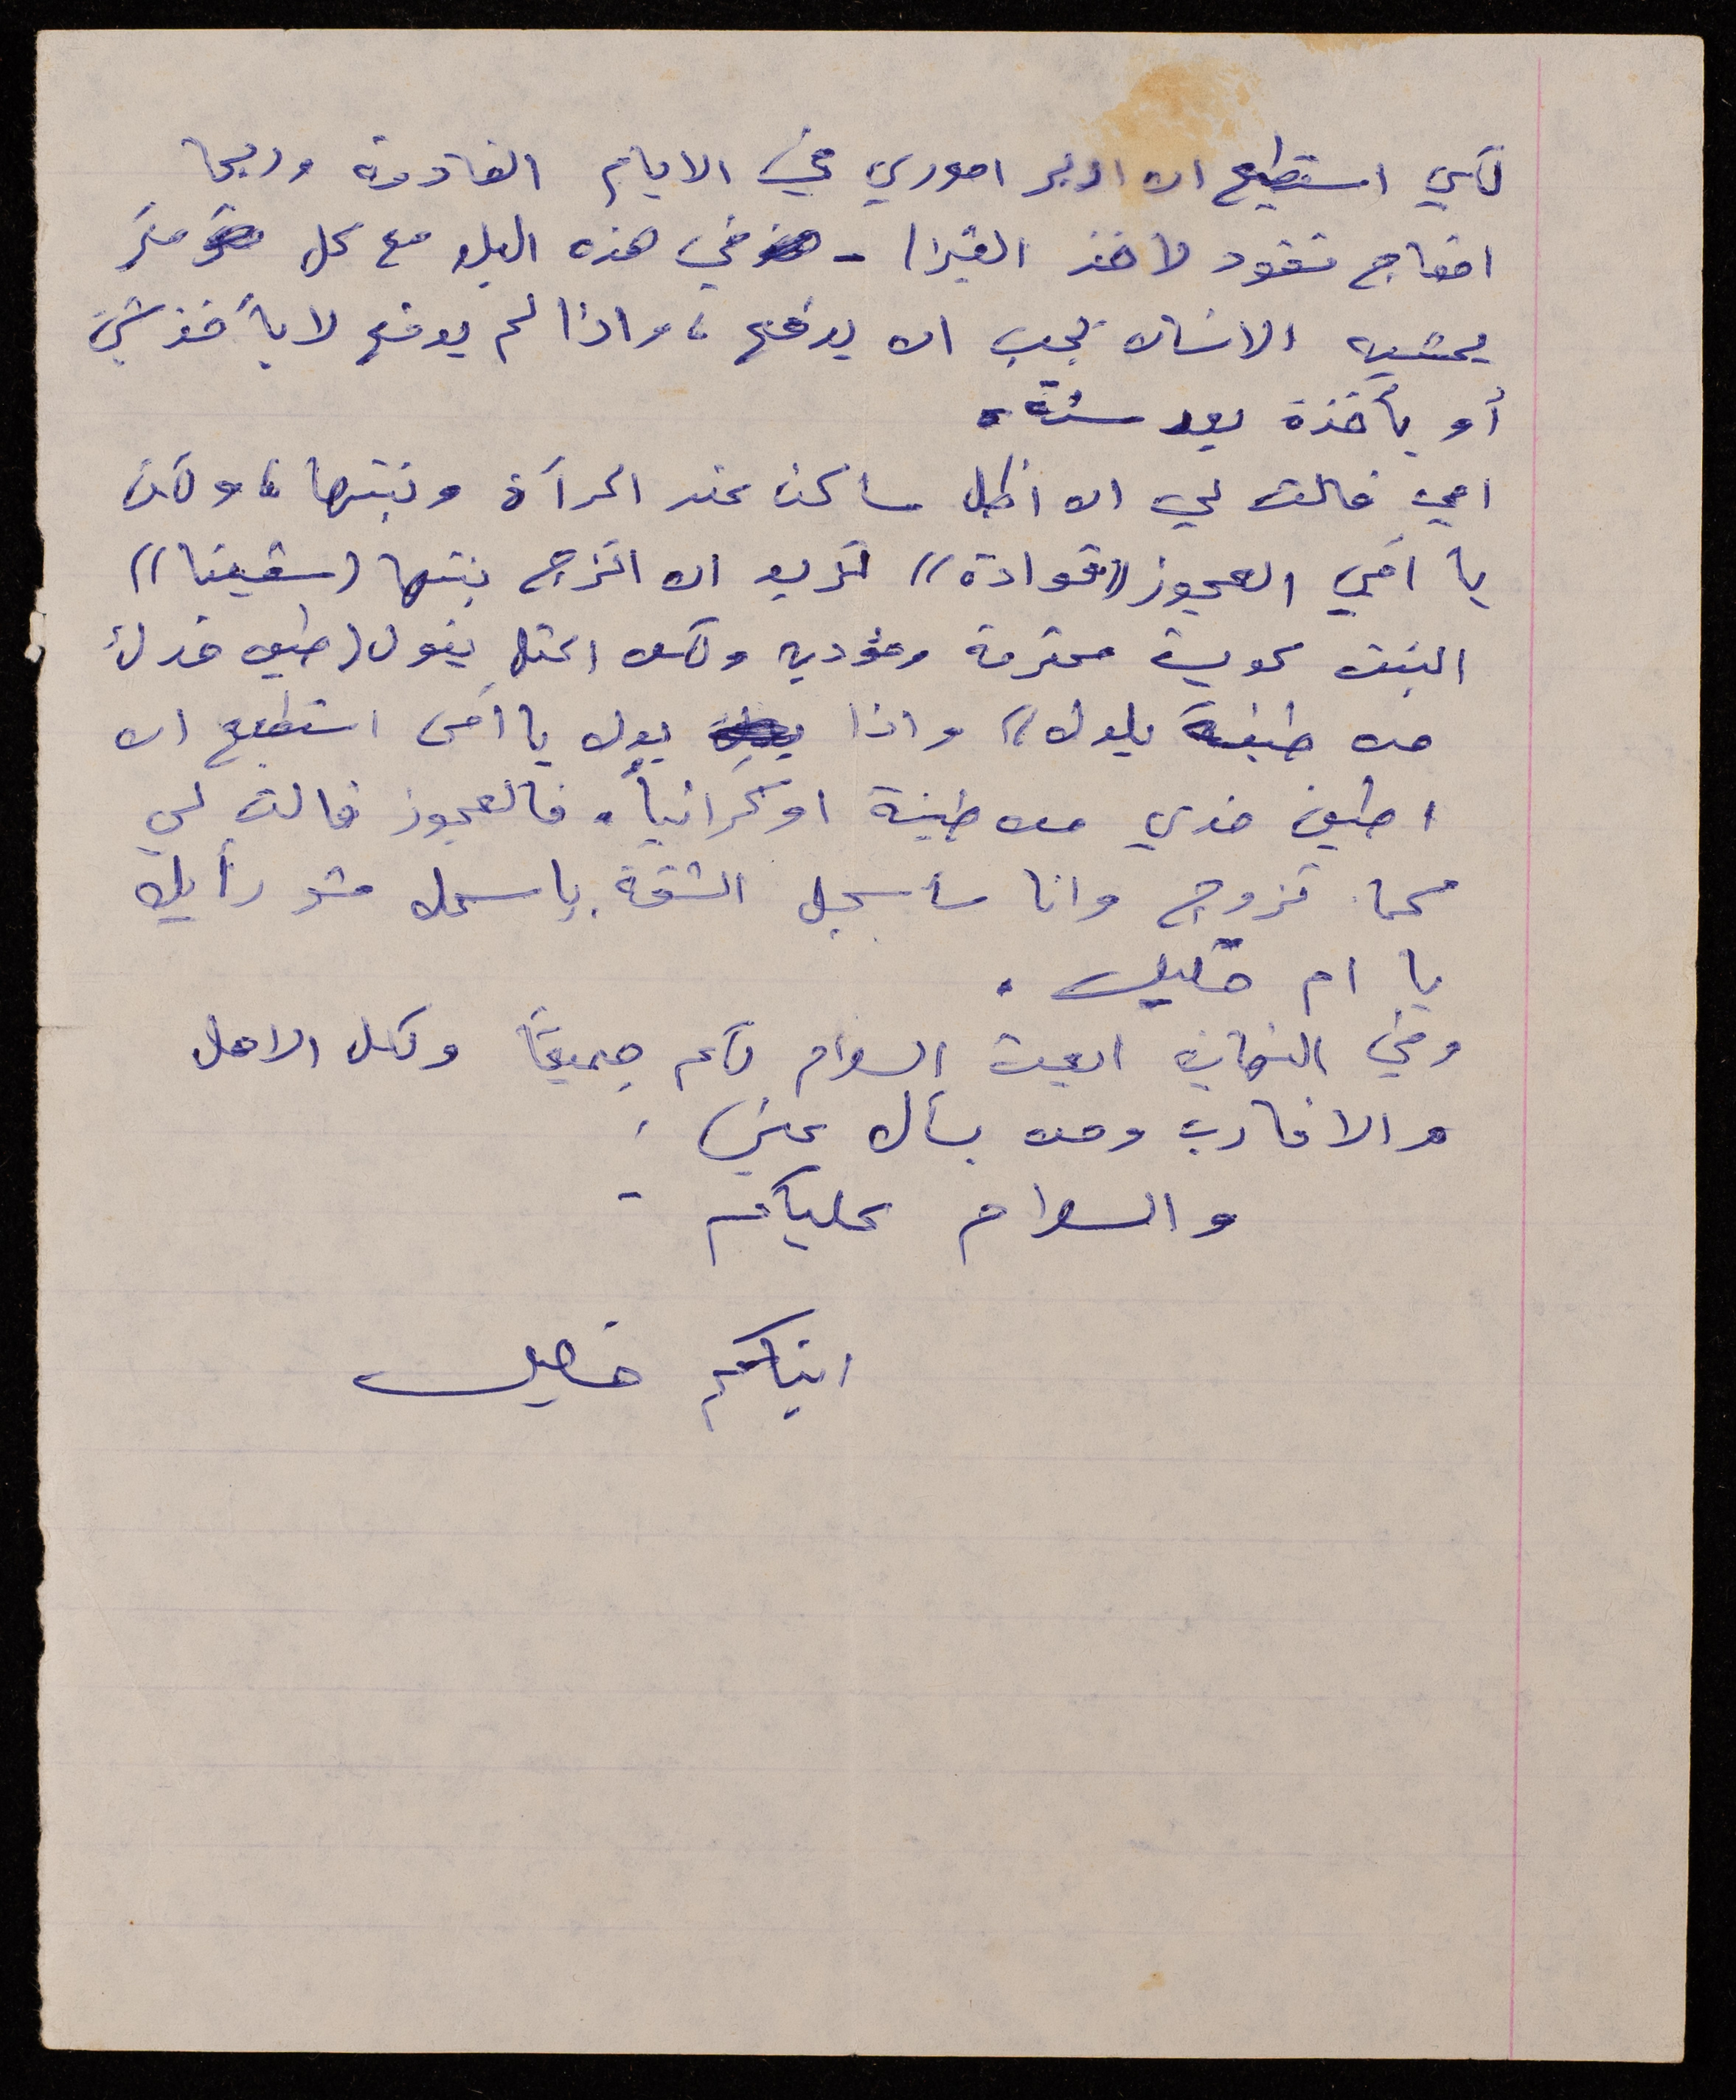 لكي استطيع ان ادبر اموري في الايام القادمة وربما
احتاج نقود لاخذ الفيزا - في هذه البلد مع كل متر
يمشيه الانسان يجب ان يدفع، واذا لم يدفع لا يأخذ شيئ
أو يأخذة بعد سنة.
امي قالت لي ان اظل ساكن عند المرآة وبنتها، ولكن
يا أمي العجوز ((قوادة)) تريد ان اتزوج بنتها (سفيتا))
البنت كويسة محترمة ومؤدبه ولكن المثل يقول (طين خدك
من طينة بلدك)) واذا بدك يا أمي استطيع ان
اطين خدي من طينة اوكرانيا. فالعجوز قالت لي
تزوج وانا سأسجل الشقة باسمك شو رأيك
يا ام خليل.
وفي النهاية ابعث السلام لكم جميعاً ولكل الاهل
والاقارب ومن يسأل عني.
والسلام عليكم -
ابنكم خليل